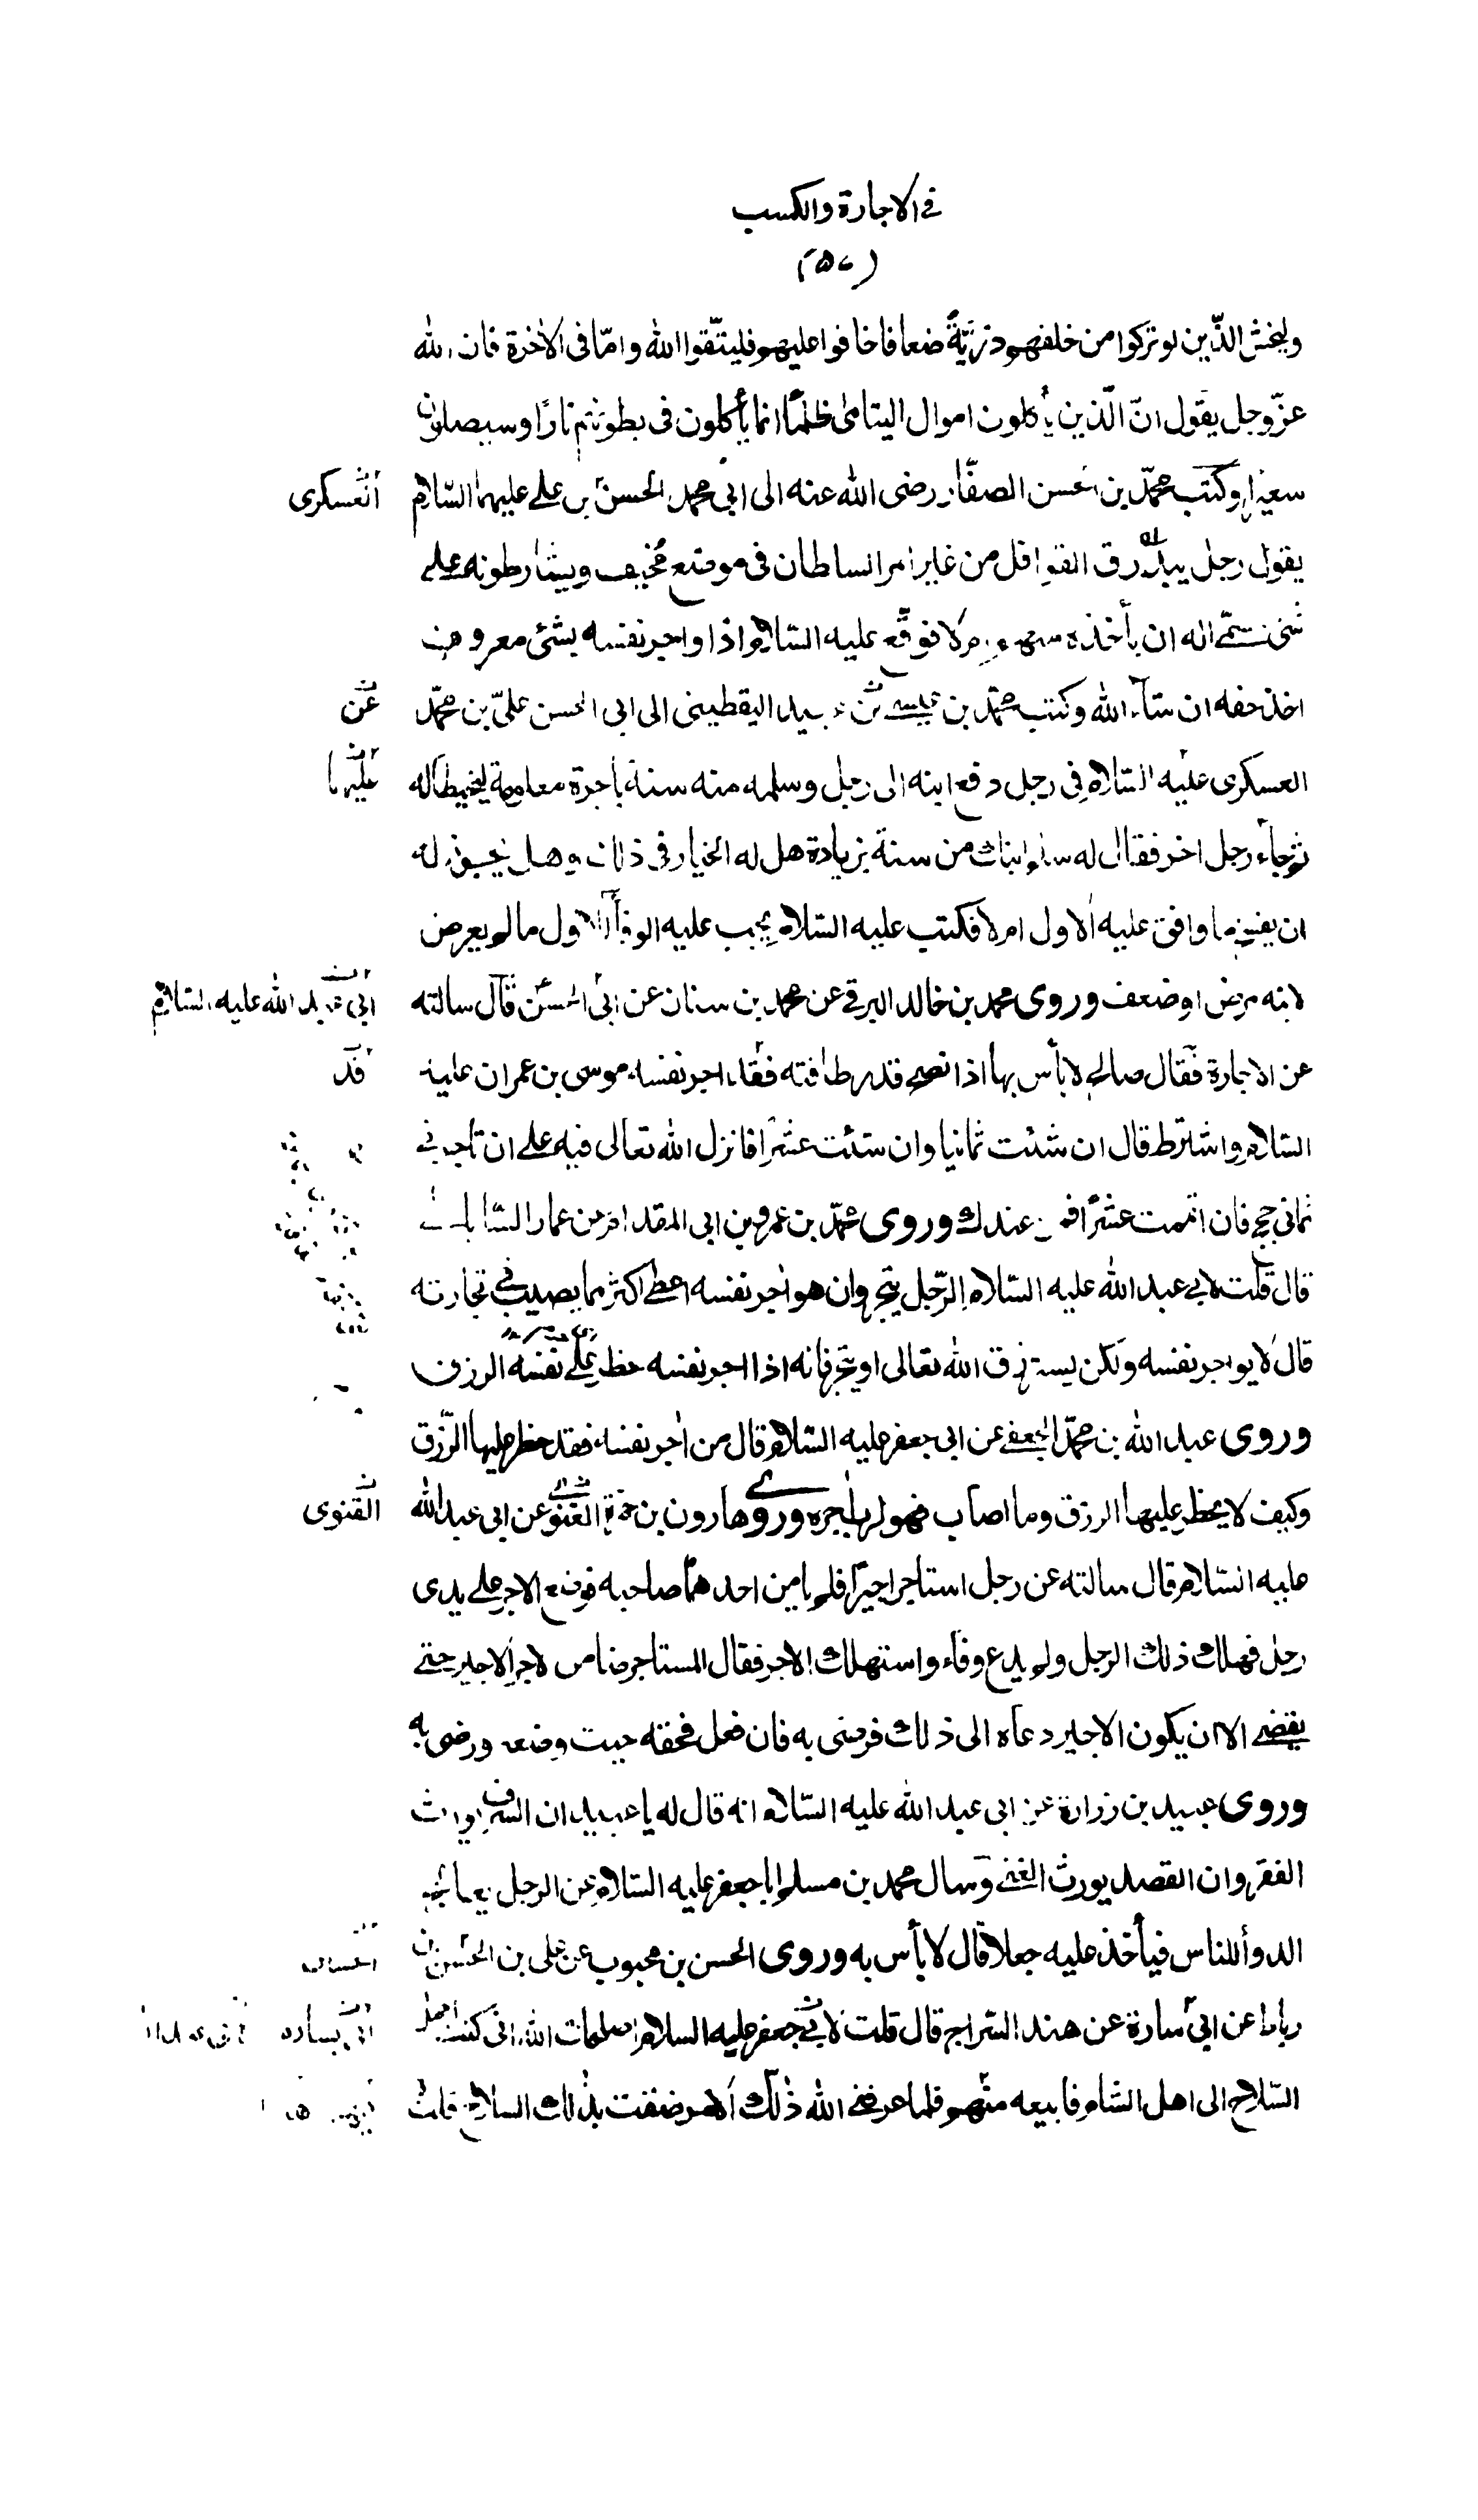 في الاجارة والكسب
(۵۷)
وليخش الّذين لو تركوا من خلفهم ذرّيّةً ضعافا خافوا عليهم فليتّقوا الله وامّا فى الاخرة فان الله
عزّ وجل يقول انّ الّذين يأكلون اموال اليتامى ظلمًا انما يأكلون فى بطونهم نارًا وسيصلون
سعيرا وكتب محمّد بن الحسن الصفّار رضى الله عنه الى ابى محمد الحسن بن على عليهما السّلام
العسكرى
يقول رجل يبذرق القوافل من غير امر السلطان فى موضع مخيف ويشارطونه على
شئ مسمّى اله ان يأخذه منهم ام لا فوقّع عليه السّلام اذا واجر نفسه بشئ معروف
اخذ حقه ان شآء الله وكتب محمّد بن عيسى بن عبيد اليقطينى الى ابى الحسن علىّ بن محمّد
عن
العسكرى عليه السّلام فى رجل دفع ابنه الى رجل وسلمه منه سنة باجرة معلومة ليخيط له
عليهما
ثم جاء رجل اخر فقال له سلم ابنك من سنة بزيادة هل له الخيار فى ذلك وهل يجوز له
ان يفسخ ما وافق عليه الاول ام لا فكتب عليه السّلام يجب عليه الوفآء للاول ما لم يعرض
لابنه مرض او ضعف وروى محمد بن خالد البرقى عن محمد بن سنان عن ابى الحسن قال سالته
ابى عبد الله عليه السّلام
عن الاجارة فقال صالح لا بأس بها اذا نصح قدر طاقته فقد اجر نفسه موسى بن عمران عليه
قد
السّلام واشترط قال ان شئت ثمانيا وان شئت عشرًا فانزل الله تعالى فيه على ان تأجرنى
ثمانى حجج فان اتممت عشرًا فمن عندك وروى محمّد بن عمرو بن ابى المقدام عن عمار السّاباطى
قال قلت لابى عبد الله عليه السّلام الرّجل يتجر وان هو اجر نفسه اعطى اكثر مما يصيب فى تجارته
قال لا يواجر نفسه ولكن يسترزق الله تعالى او يتجر فانه اذا اجر نفسه حظر على نفسه الرزق
وروى عبد الله بن محمّد الجعفى عن ابى جعفر عليه السّلام قال من اجر نفسه فقد حظر عليها الرّزق
وكيف لا يحظر عليها الرزق وما اصاب فهو لرب اجره وروى هارون بن حمزة الغنوى عن ابى عبد الله
القنوى
عليه السّلام قال سالته عن رجل استاجر اجيرًا فلم يامن احدهما صاحبه فوضع الاجر على يدى
رجل فهلك ذلك الرجل ولم يدع وفآء واستهلك الاجر فقال المستاجر ضامن لاجر الاجير حتى
يقضى الا ان يكون الاجير دعاه الى ذلك فرضى به فان فعل فحقه حيث وضعه ورضى به
وروى عبيد بن زرارة عن ابى عبد الله عليه السّلام انه قال له يا عبيد ان السرف يورث
الفقر وان القصد يورث الغنى وسال محمد بن مسلم ابا جعفر عليه السّلام عن الرجل يعالج
الدوآء للناس فيأخذ عليه جعلا قال لا بأس به وروى الحسن بن محبوب عن على بن الحسن بن
رباط عن ابى سارة عن هند السّراج قال قلت لابى جعفر عليه السلام اصلحك الله انى كنت احمل
ابى بساره
السّلاح الى اهل الشام فابيعه منهم فلما عرفنى الله ذلك الامر ضقت بذلك السلاح قلت